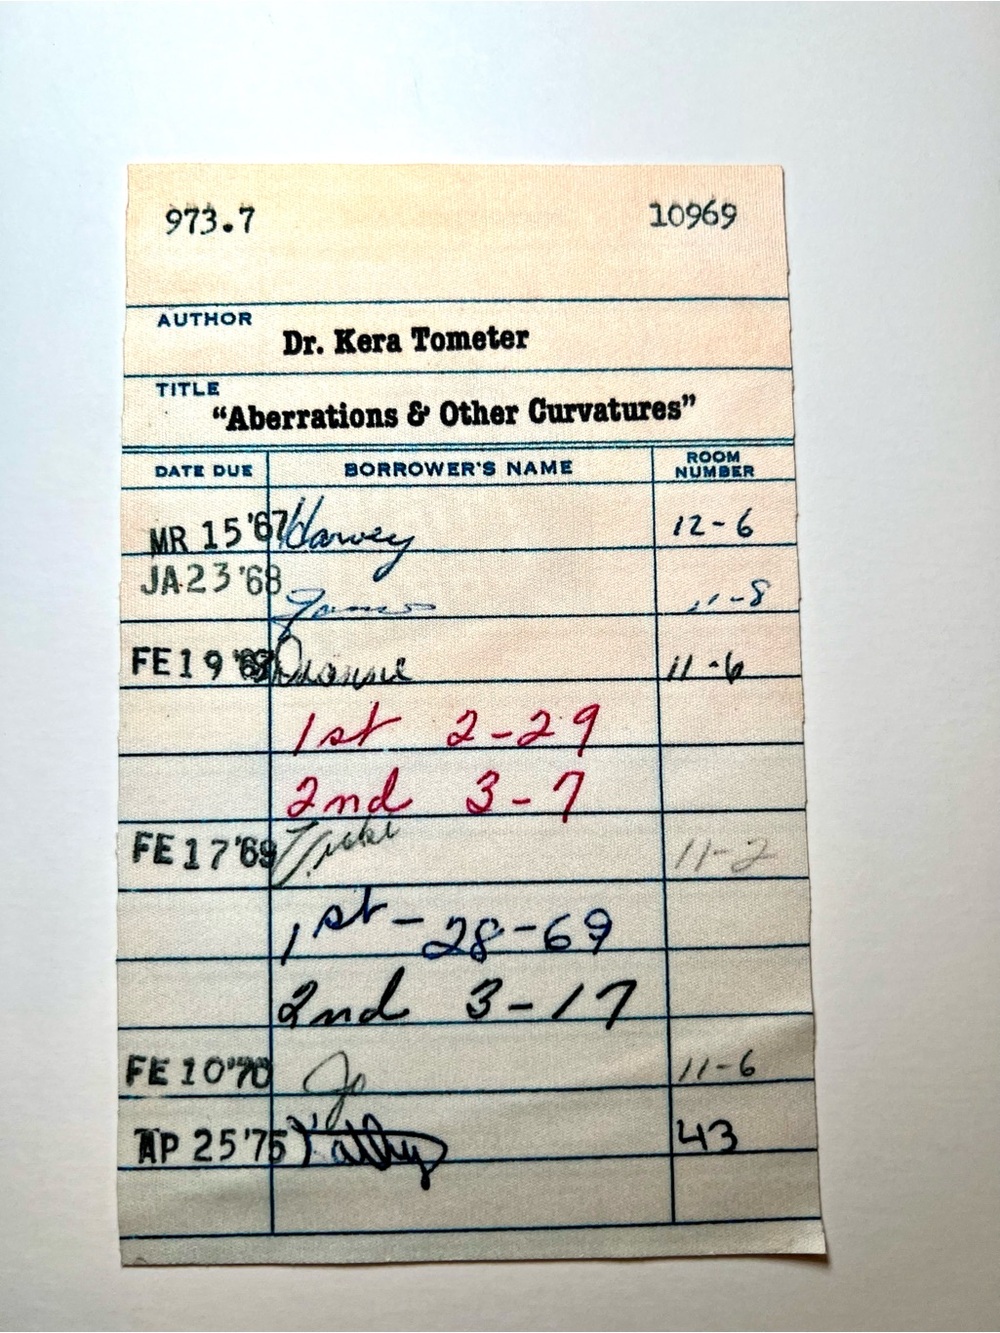 973.7 10969
AUTHOR
Dr. Kera Tometer
TITLE
“Aberrations & Other Curvatures”
DATE DUE BORROWER'S NAME ROOM NUMBER
MR 15 '67 Harvey 12-6
JA 23 '68 James 11-8
FE 19 '68 Dianne 11-6
1st 2-29
2nd 3-7
FE 17 '69 Vicki 11-2
1st - 28-69
2nd 3-17
FE 10 '70 Jo 11-6
AP 25 '75 Kathy 43